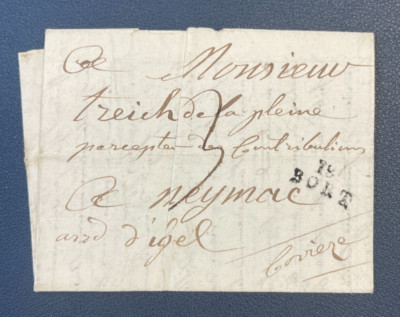 A Monsieur
treich de la pleine
percepteur des Contributions
3
18
BORT
A neymac
arrd d'igel
Corrèze